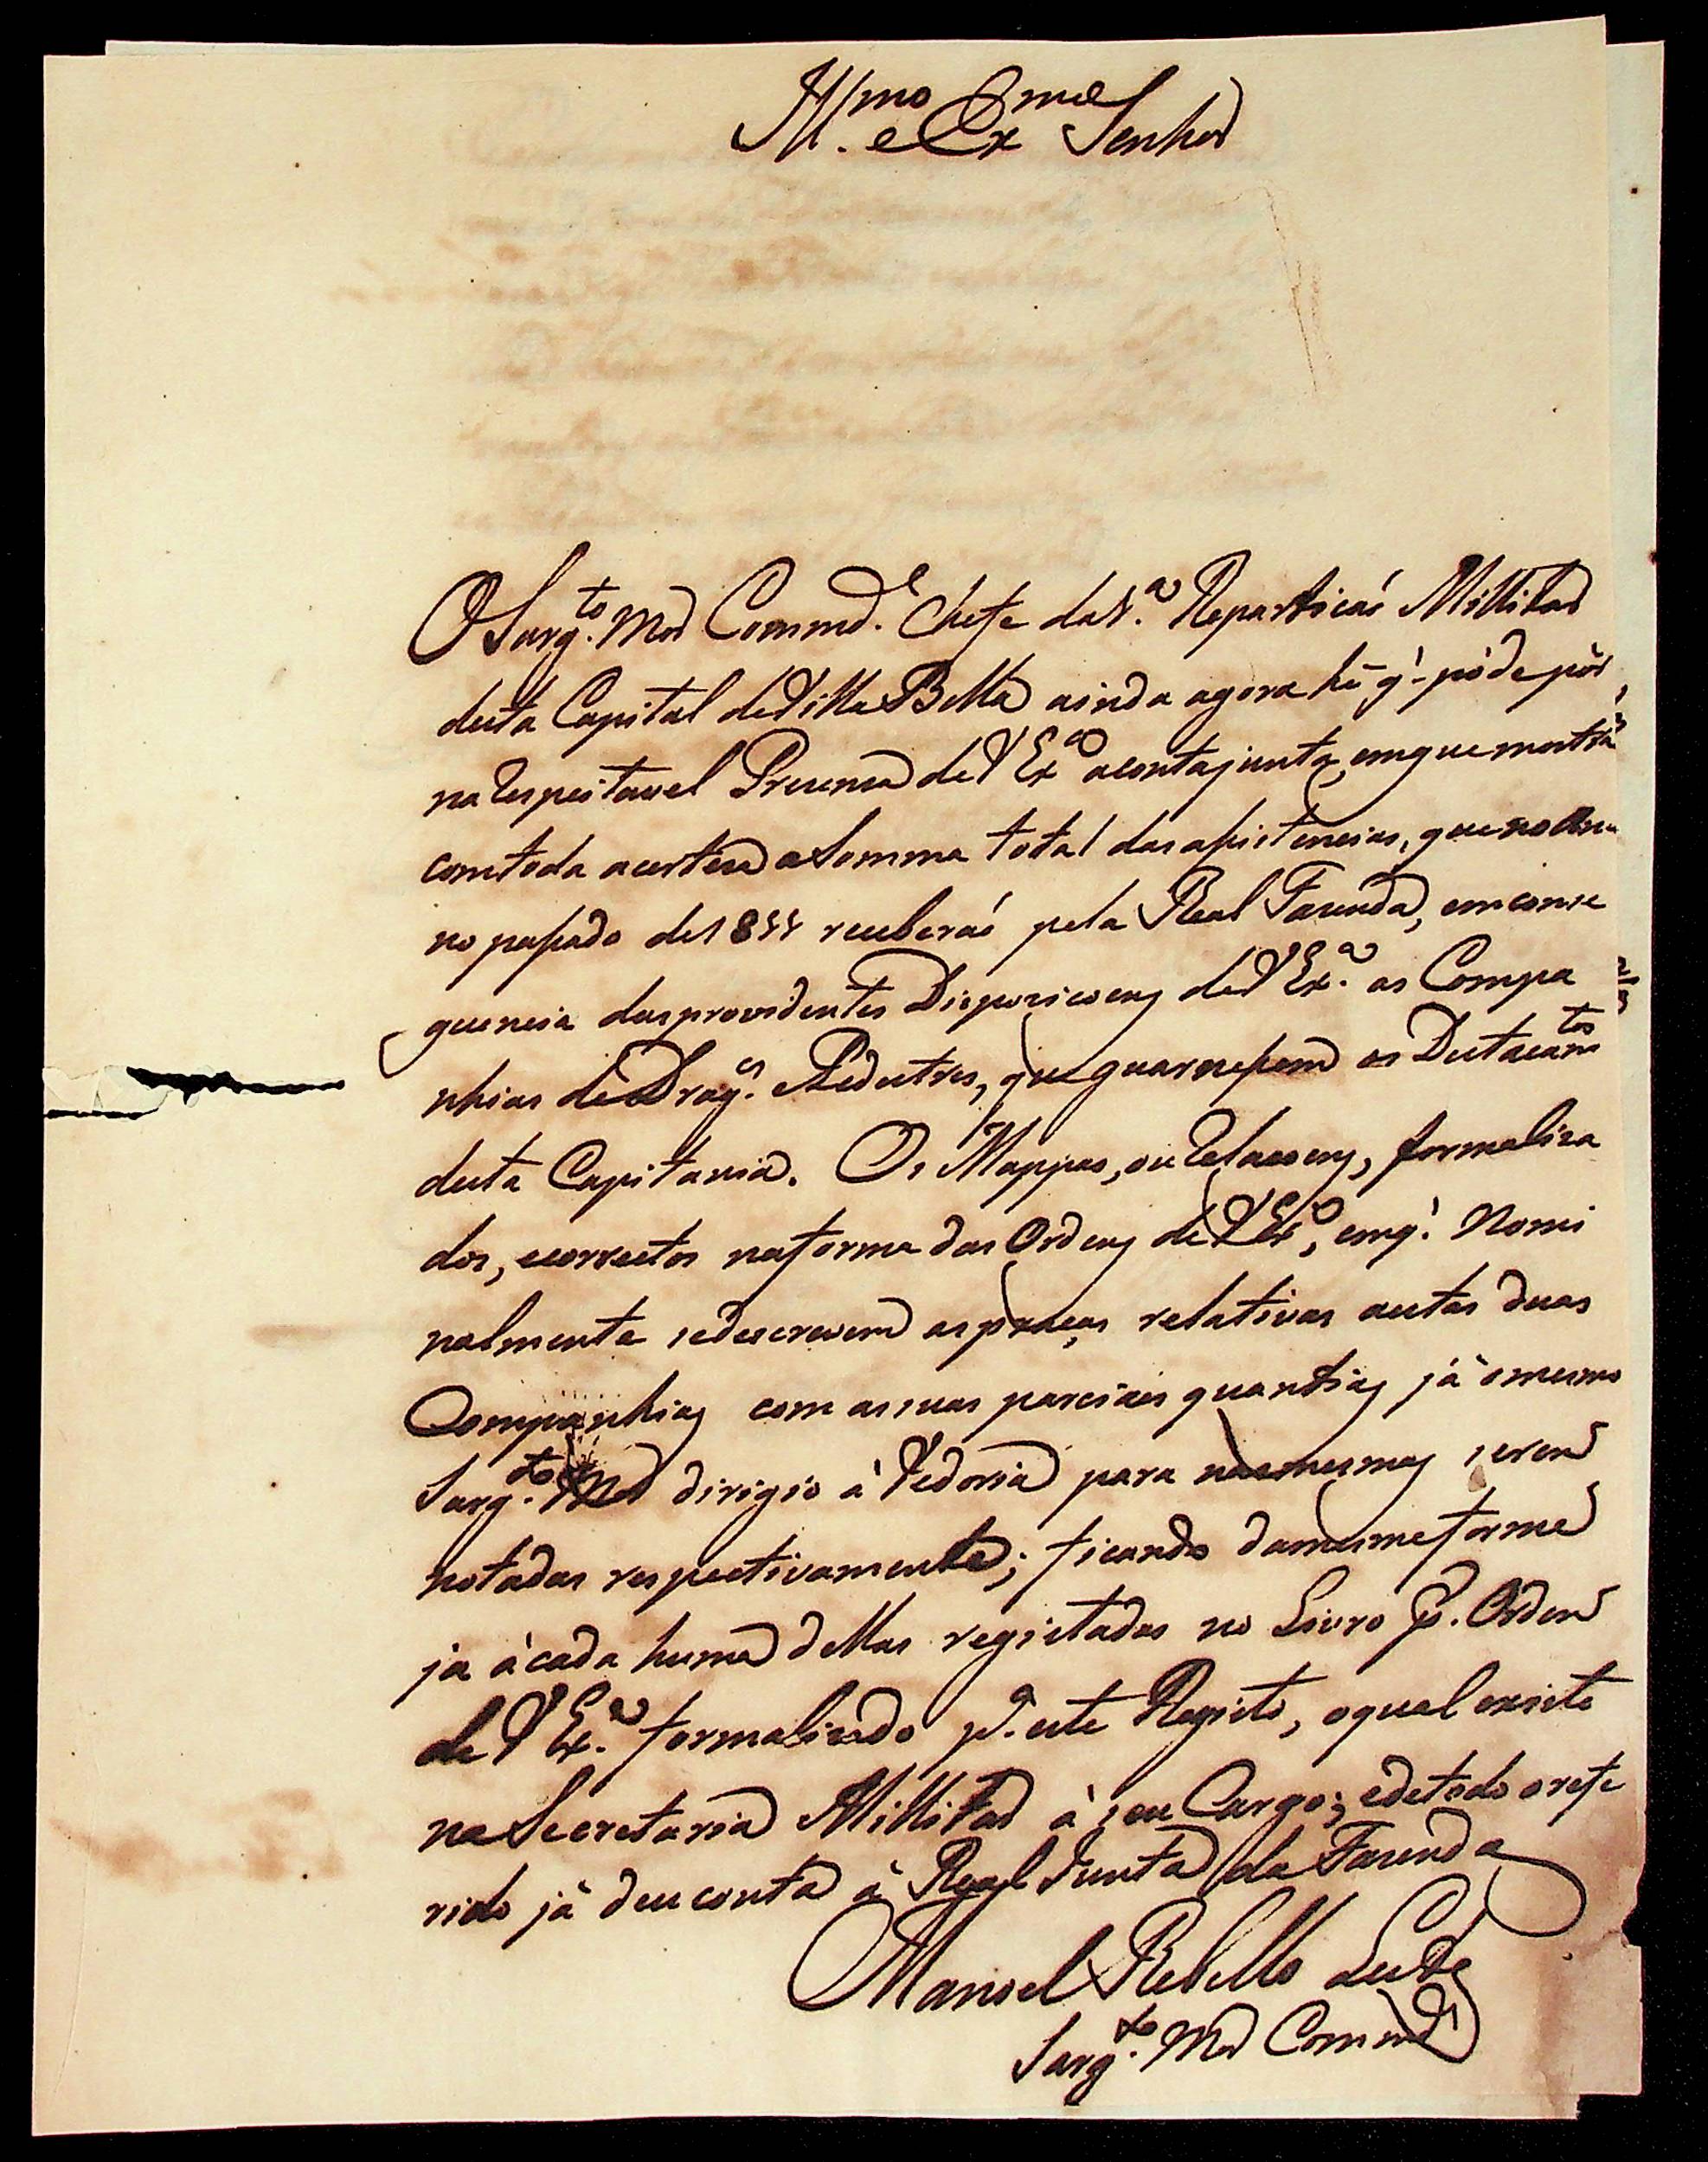 Ill.mo e Ex.mo Senhor
O Sarg.to Mór Commd.e Chefe da 1.a Repartição Millitar
desta Capital de Villa Bella ainda agora he q̀ póde pôr,
na respeitavel Presensa de V Ex.a a conta junta, em que mostra
com toda a certesa a Somma total das assistencias, que no An-
no passado de 1811 receberaõ pela Real Fazenda, em conse
quencia das providentes Disposiçoens de V Ex.a as Compa
nhias de Drag.es e Pedestres, que guarnessem os Destacam.tos
desta Capitania. Os Mappas, ou Relaçoens, formaliza
dos, e correctos na forma das Ordens de V Ex.a, em q̀ Nomi
nalmente se descrevem as praças relativas a estas duas
Companhias com as suas parciaes quantias já o mesmo
Sarg.to Mór dirigio à Vedoria para nas mesmas serem
notadas respectivamente; ficando da mesma forma
ja à cada huma dellas registadas no Livro p. Ordem
de V Ex.a formalizado p.a este Registo, o qual existe
na Secretaria Millitar à seu Cargo; e de todo o refe
rido já deu conta à Real Junta da Fazenda
Manoel Rebello Leite
Sarg.to Mór Commd.e